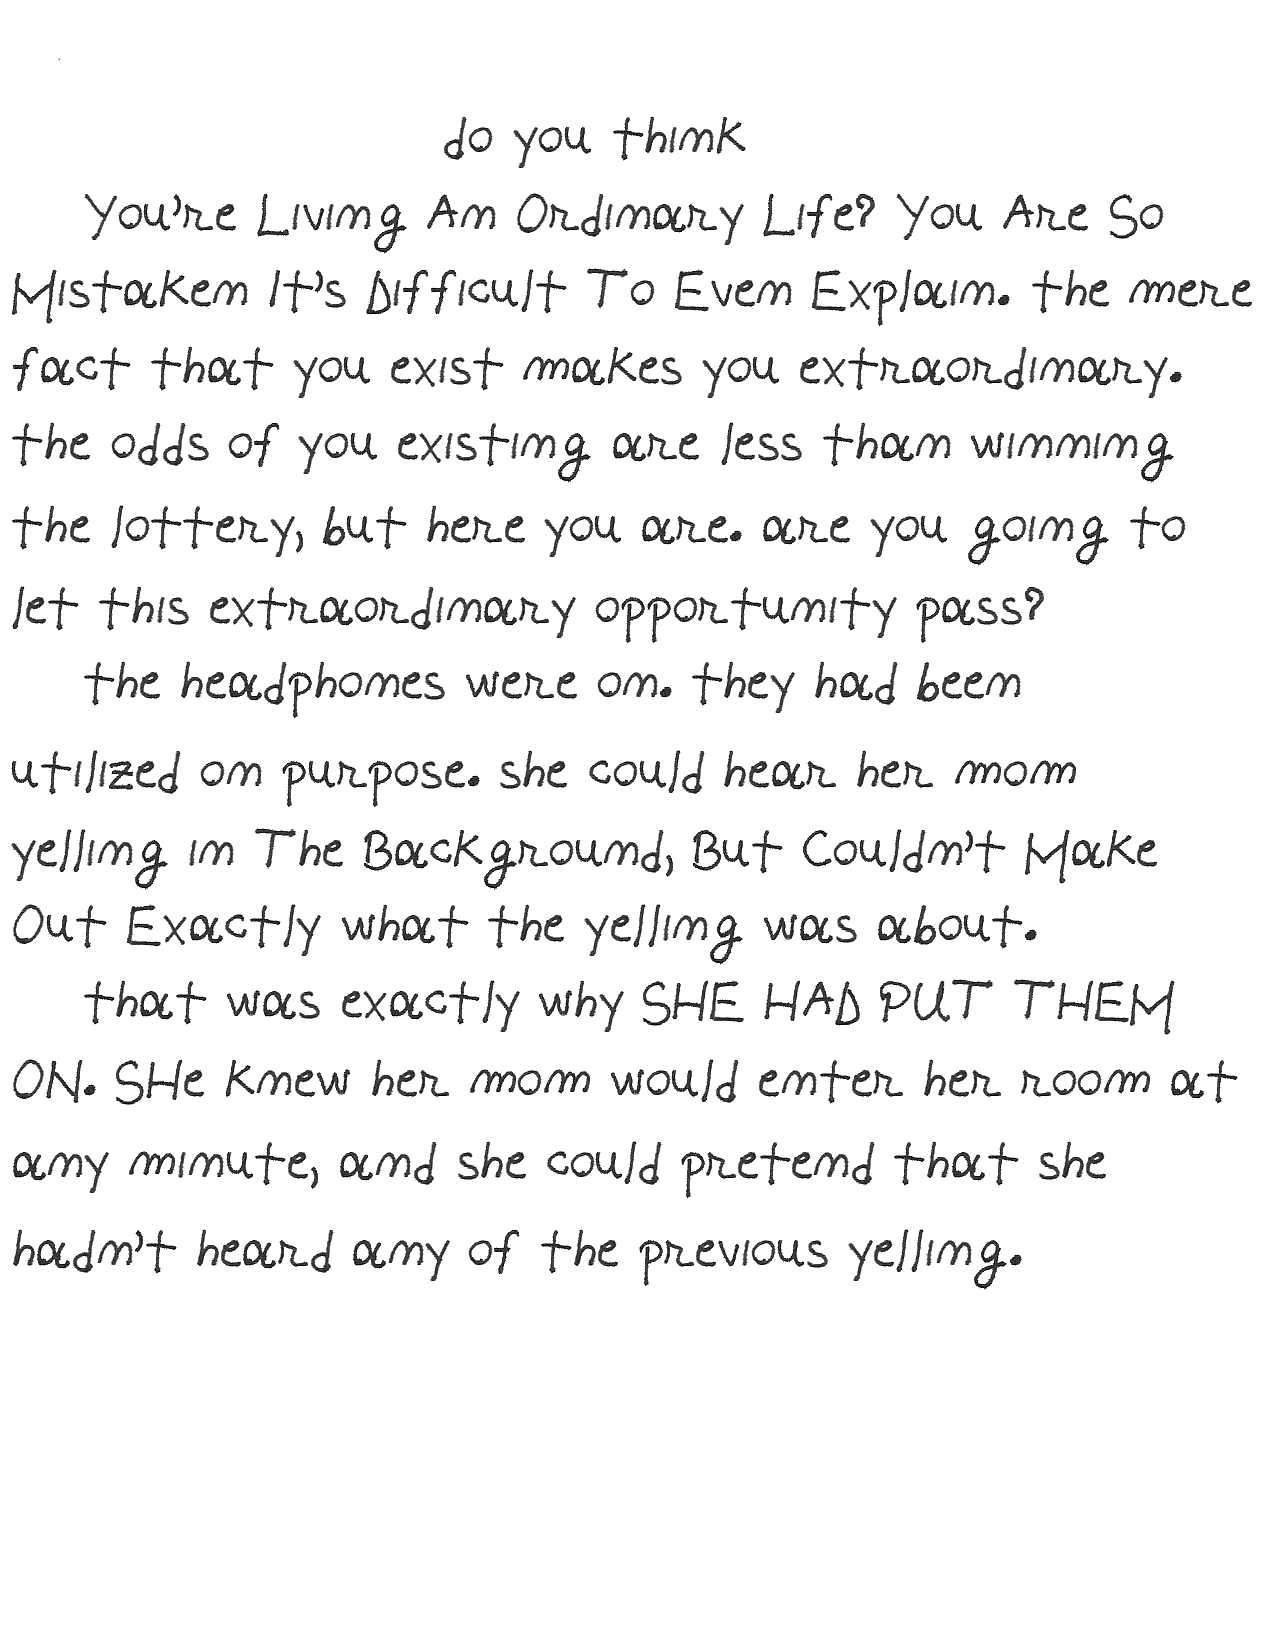 do you think
You're Living An Ordinary Life? You Are So
Mistaken It's Difficult To Even Explain. the mere
fact that you exist makes you extraordinary.
the odds of you existing are less than winning
the lottery, but here you are. are you going to
let this extraordinary opportunity pass?
the headphones were on. they had been
utilized on purpose. she could hear her mom
yelling in The Background, But Couldn't Make
Out Exactly what the yelling was about.
that was exactly why SHE HAD PUT THEM
ON. SHe knew her mom would enter her room at
any minute, and she could pretend that she
hadn't heard any of the previous yelling.